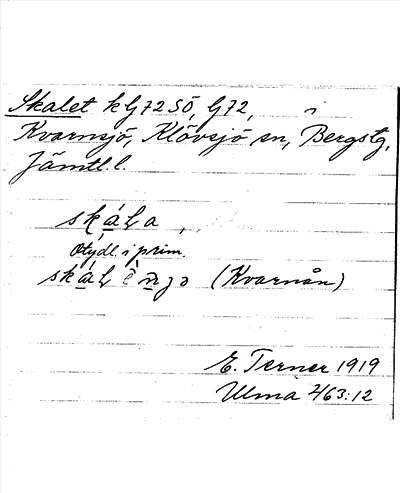 Skalet k G72SÖ, G72,
Kvarnsjö, Klövsjö sn, Bergstg,
Jämtl. l.
skáLa
Otydl. i prim.
(Kvarnån)
E. Terner 1919
Ulma 463:12